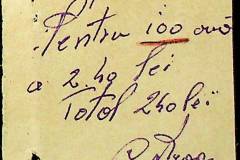 Pentru 100 ouă
a 2,40 lei
Total 240 lei